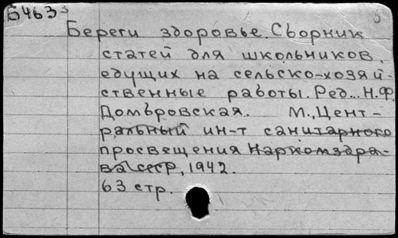 Б463³
Береги здоровье. Сборник
статей для школьников,
едущих на сельско-хозяй-
ственные работы. Ред... Н.Ф.
Домбровская. М., Цент-
ральный ин-т санитарного
просвещения Наркомздра-
ва СССР, 1942.
63 стр.